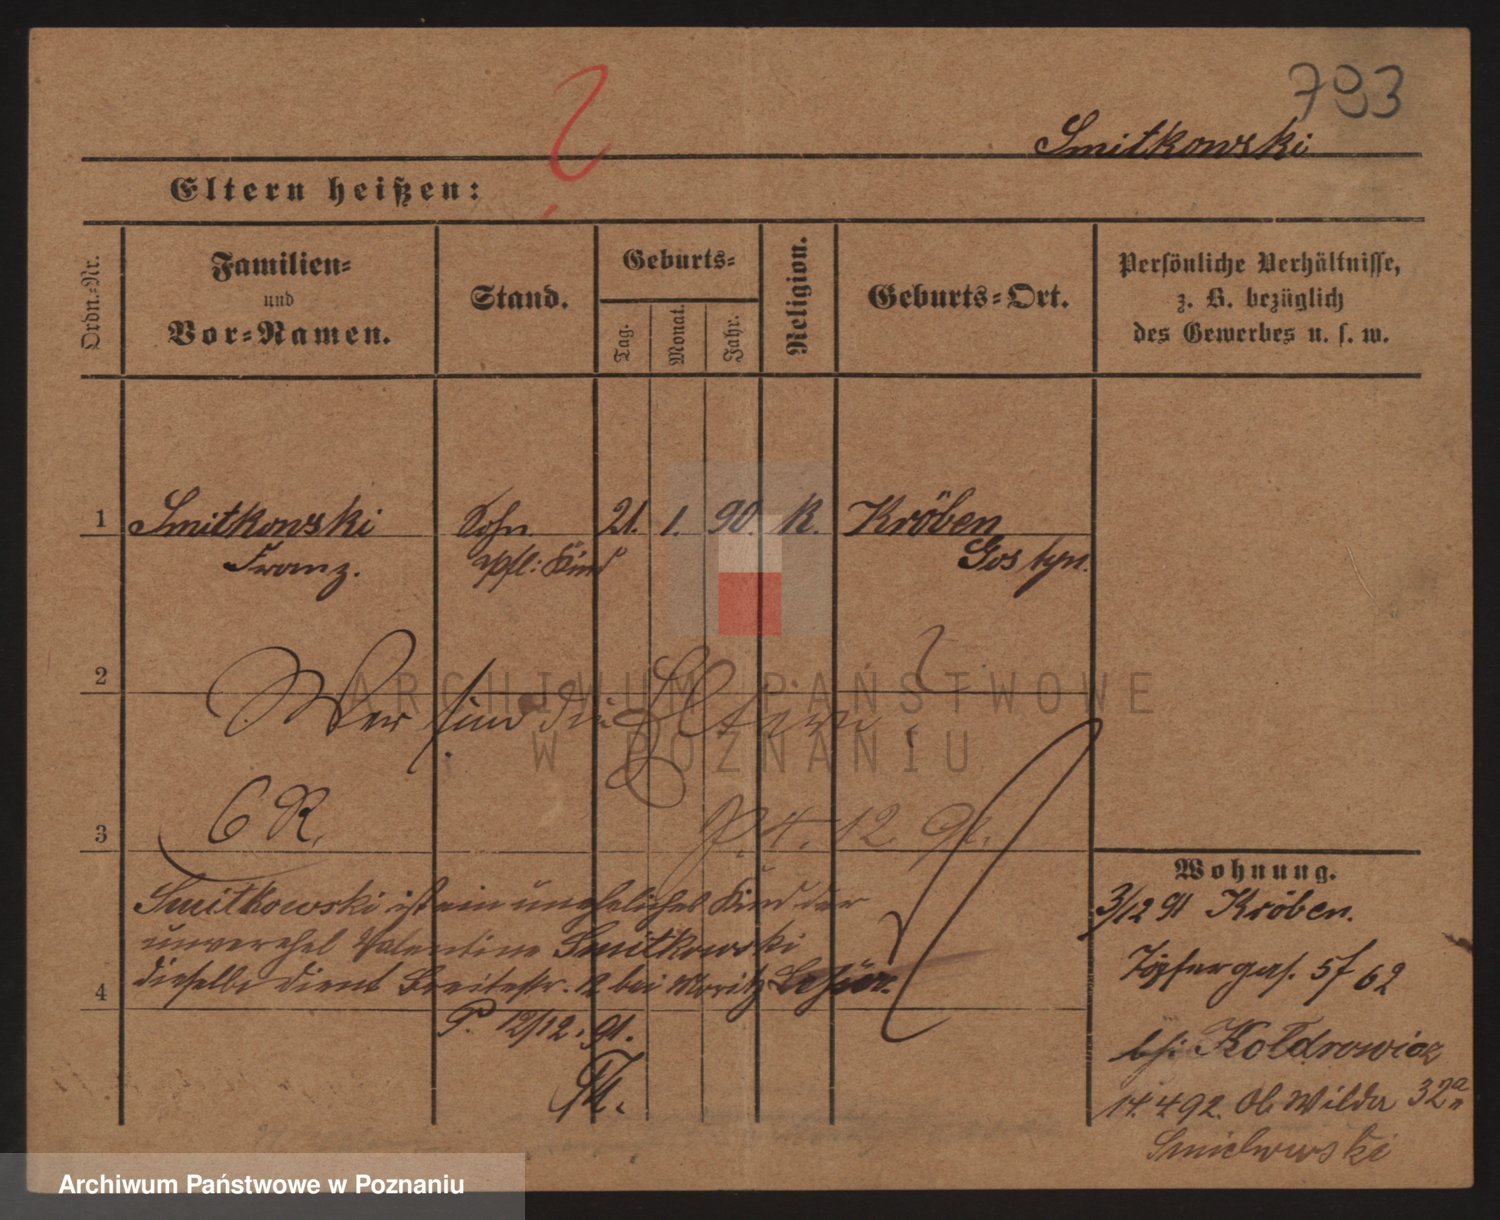 793
Smitkowski
Eltern heißen:
Ordn.-Nr.
Familien-
und
Vor-Namen.
Stand.
Geburts-
Tag.
Monat.
Jahr.
Religion.
Geburts-Ort.
Persönliche Verhältnisse,
z. B. bezüglich
des Gewerbes u. s. w.
1 Smitkowski Sohn 21. 1. 90. K. Kröben
Franz. Pfl: Kind Gostyn.
2
Wer sind die Eltern ?
ARCHIWUM PAŃSTWOWE
W POZNANIU
6 R.
P. 4. 12. 91.
3
Wohnung.
3/12 91 Kröben.
Smitkowski ist ein uneheliches Kind der
unverehel Valentine Smitkowski
dieselbe dient Breitestr. 12 bei Moritz
4
P. 12/12. 91.
62
bei Koldrowicz
14 4 92. Ob. Wilda 32a
Archiwum Państwowe w Poznaniu